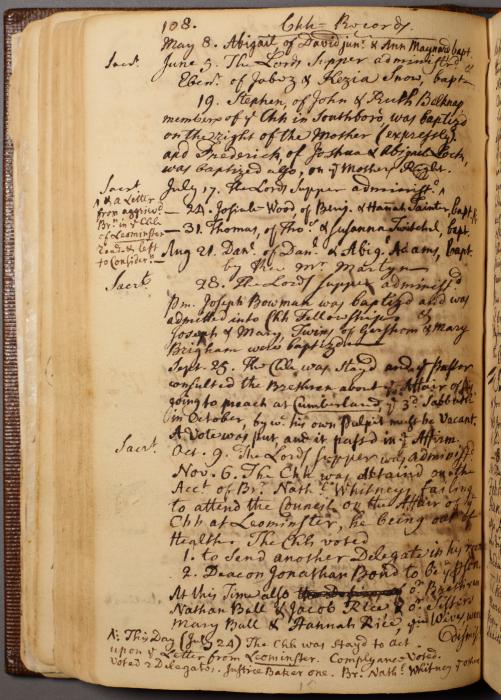 108. Chh= Records.
May 8. Abigail, of David junr. & Ann Maynard bapt.
Sacrt. June 5. The Lords Supper administrd. &
Ebenr. of Jabez & Kezia Snow, bapt=
19. Stephen, of John & Ruth Belknap
members of ye Chh in Southboro, was baptizd
on the right of the Mother (expressly)
and Frederick, of Joshua & Abigail Lock,
was baptized also, on ye Mothers Right.
Sacrt. July 17. The Lords Supper administrd. ^
^ & a Letter
from aggrievd.
Brn. in ye Chh
of Leominster
read & left
to Consider.—
— 24. Josiah-Wood of Benj. & Hannah Tainter, bapt.
— 31. Thomas, of Thos. & Susanna Twitchel, bapt.
Aug 21. Danl. of Danl. & Abig. Adams, bapt.
by the Mr. Martyn—
Sacrt. 28. The Lords Supper administd.
pm. Joseph Bowman was baptizd and was
admitted into Chh Fellowship &
Joseph & Mary, Twins of Gershom & Mary
Brigham were baptizd—
Sept. 25. The Chh was Stayd and ye Pastor
consulted the Brethren about ye Affair of his
going to preach at Cumberland, ye 3d. Sabbath
in October, by wc. his own Pulpit must be Vacant.
A Vote was put, and it passd in ye Affirm.
Sacrt. Oct. 9. The Lords Supper was administd.
Nov. 6. The Chh was detaind on the
Acct. of Br. Nathl. Whitneys failing
to attend the Council on the Affair of ye
Chh at Leominster, he being out of
Health. The Chh voted
1. to send another Delegate in his room
2. Deacon Jonathan Bond to be ye person.
At this Time also or. Brethren
Nathan Ball & Jacob Rice & or. Sisters
Mary Ball & Hannah Rice, were
Dismissd
N: This Day (July 24) The Chh was Stayd to act
upon ye Letter from Leominster. Compliance Voted.
Voted 2 Delegates. Justice Baker one. Br. Nathl. Whitney ye other